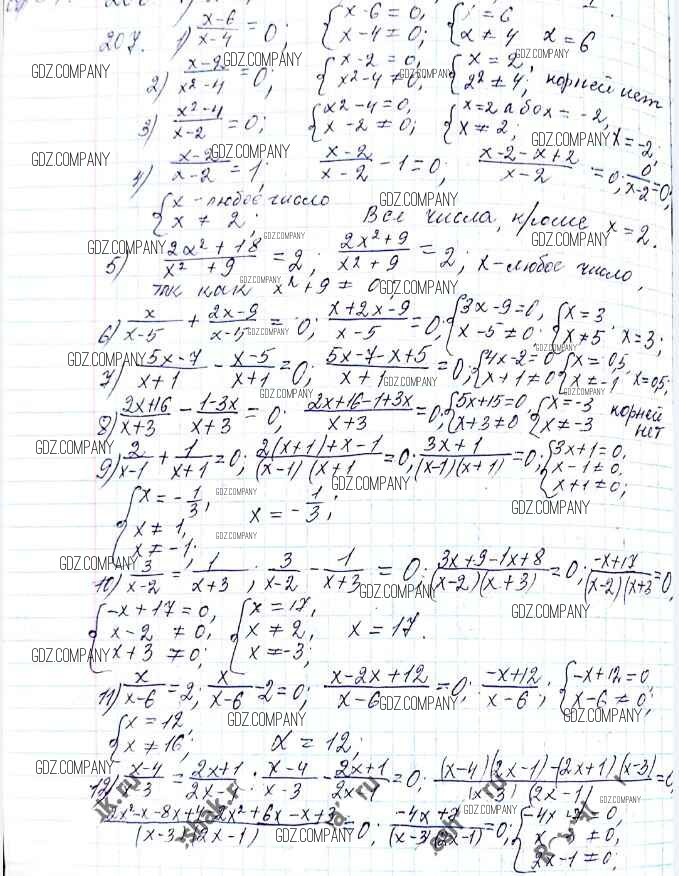 207. 1) (x-6)/(x-4) = 0; {x-6=0, x-4=0; {x=6 x≠4 x=6
2) (x-2)/(x²-4) = 0; {x-2=0, x²-4≠0; {x=2, 2²≠4; корней нет
3) (x²-4)/(x-2) = 0; {x²-4=0, x-2≠0; {x=2 або x=-2, x≠2; x=-2;
4) (x-2)/(x-2) = 1; (x-2)/(x-2) - 1 = 0; (x-2-x+2)/(x-2) = 0; 0/(x-2) = 0;
{x - любое число x≠2; Все числа, кроме x=2.
5) (2x²+18)/(x²+9) = 2; (2x²+9)/(x²+9) = 2; x-любое число,
тк как x²+9≠0.
6) x/(x-5) + (2x-9)/(x-5) = 0; (x+2x-9)/(x-5) = 0; {3x-9=0, x-5≠0; {x=3 x≠5; x=3;
7) (5x-7)/(x+1) - (x-5)/(x+1) = 0; (5x-7-x+5)/(x+1) = 0; {4x-2=0 x+1≠0 {x=0,5 x≠-1 x=0,5;
8) (2x+16)/(x+3) - (1-3x)/(x+3) = 0; (2x+16-1+3x)/(x+3) = 0; {5x+15=0 x+3≠0 {x=-3 x≠-3 корней нет
9) 2/(x-1) + 1/(x+1) = 0; (2(x+1)+x-1)/((x-1)(x+1 = 0; (3x+1)/((x-1)(x+1)) = 0; {3x+1=0, x-1≠0, x+1≠0;
{x=-1/3, x≠1, x≠-1; x=-1/3;
10) 3/(x-2) = 1/(x+3); 3/(x-2) - 1/(x+3) = 0; (3x+9-1x+8)/((x-2)(x+3)) = 0; (-x+17)/((x-2)(x+3 = 0,
{-x+17=0, x-2≠0, x+3≠0; {x=17, x≠2, x=-3; x=17.
11) x/(x-6) = 2; x/(x-6) - 2 = 0; (x-2x+12)/(x-6) = 0; (-x+12)/(x-6); {-x+12=0 x-6≠0;
{x=12 x≠16; x=12;
12) (x-4)/(x-3) = (2x+1)/(2x-1); (x-4)/(x-3) - (2x+1)/(2x-1) = 0; ((x-4)(2x-1)-(2x+1)(x-3))/((x-3)(2x-1)) = 0
(2x²-x-8x+4-2x²+6x-x+3)/((x-3)(2x-1)) = 0; (-4x+7)/((x-3)(2x-1)) = 0; {-4x+7=0, x-3≠0, 2x-1≠0;
GDZ.COMPANY